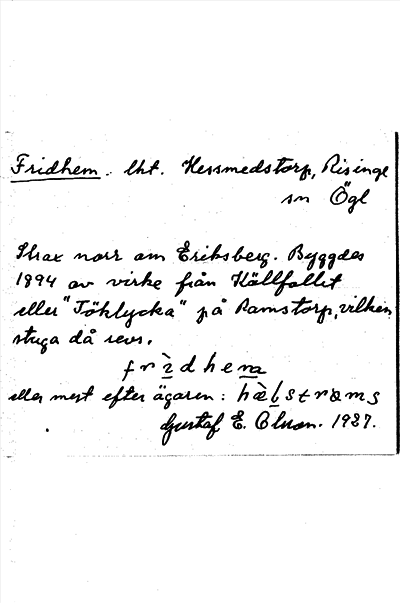 Fridhem. lht. Hessmedstorp, Risinge
sn Ögl
Strax norr om Eriksberg. Byggdes
1894 av virke från Källfallet
eller "Töklycka" på Ramstorp, vilken
stuga då revs.
frìdhem
eller mest efter ägaren: hæ̀lstrøms
Gustaf E. Olsson. 1937.